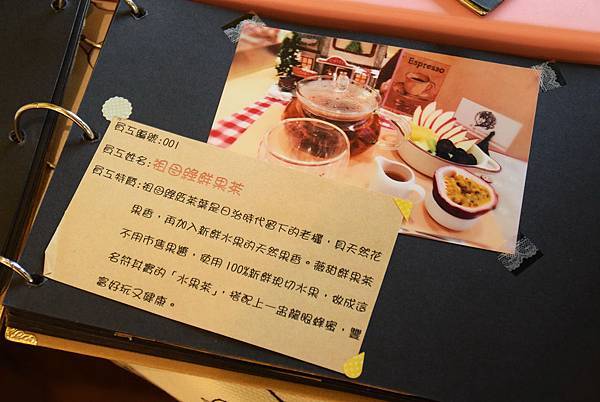 Espresso
員工編號:001
員工姓名:祖母綠鮮果茶
員工特質:祖母綠臣茶葉是日治時代留下的老欉，具天然花
果香，再加入新鮮水果的天然果香。薇甜鮮果茶
不用市售果醬，使用100%新鮮現切水果，做成這
名符其實的「水果茶」，搭配上一盅龍眼蜂蜜，豐
富好玩又健康。